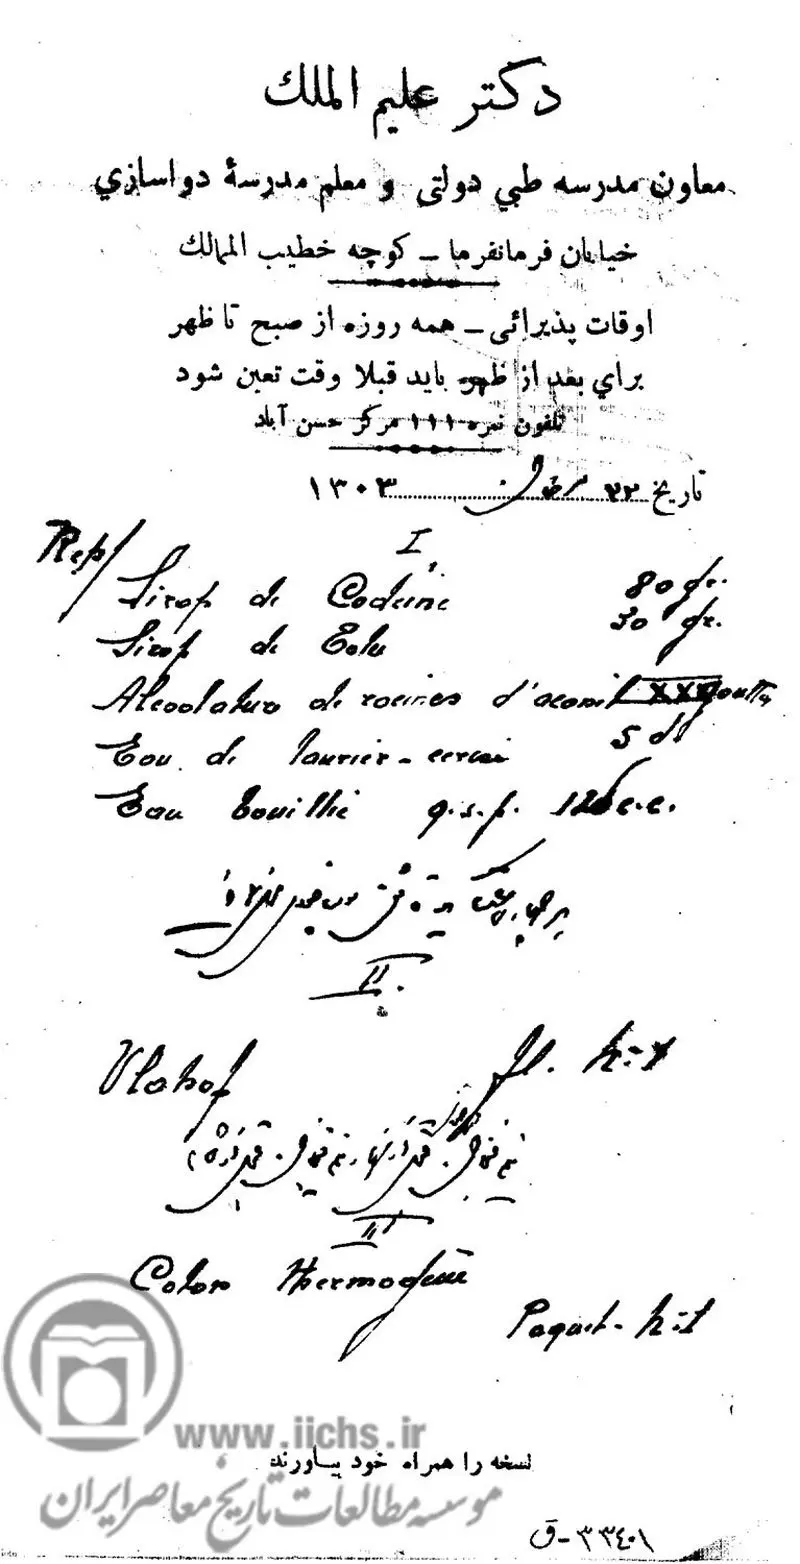 دكتر عليم الملك
معاون مدرسه طبي دولتى و معلم مدرسهٔ دواسازي
خيابان فرمانفرما ــ كوچه خطيب الممالك
اوقات پذيرائى ــ همه روزه از صبح تا ظهر
براي بعد از ظهر بايد قبلا وقت تعين شود
تلفون نمره ۱۱۱ مركز حسن آباد
تاريخ ۲۲ ۱۳۰۳
Rep/ I
Sirop de Codeine 80 gr.
Sirop de Tolu 30 gr.
Alcoolature de racines d'aconit XXX goutts
Eau de laurier-cerise 5 dr
Eau bouillie q.s.p. 120 c.c.
II
fl. n:1
III
Coton Thermogène
Paquet n:1
www.iichs.ir
نسخه را همراه خود بياورند
موسسه مطالعات تاریخ معاصر ایران
۳۳۴۰۱-ق